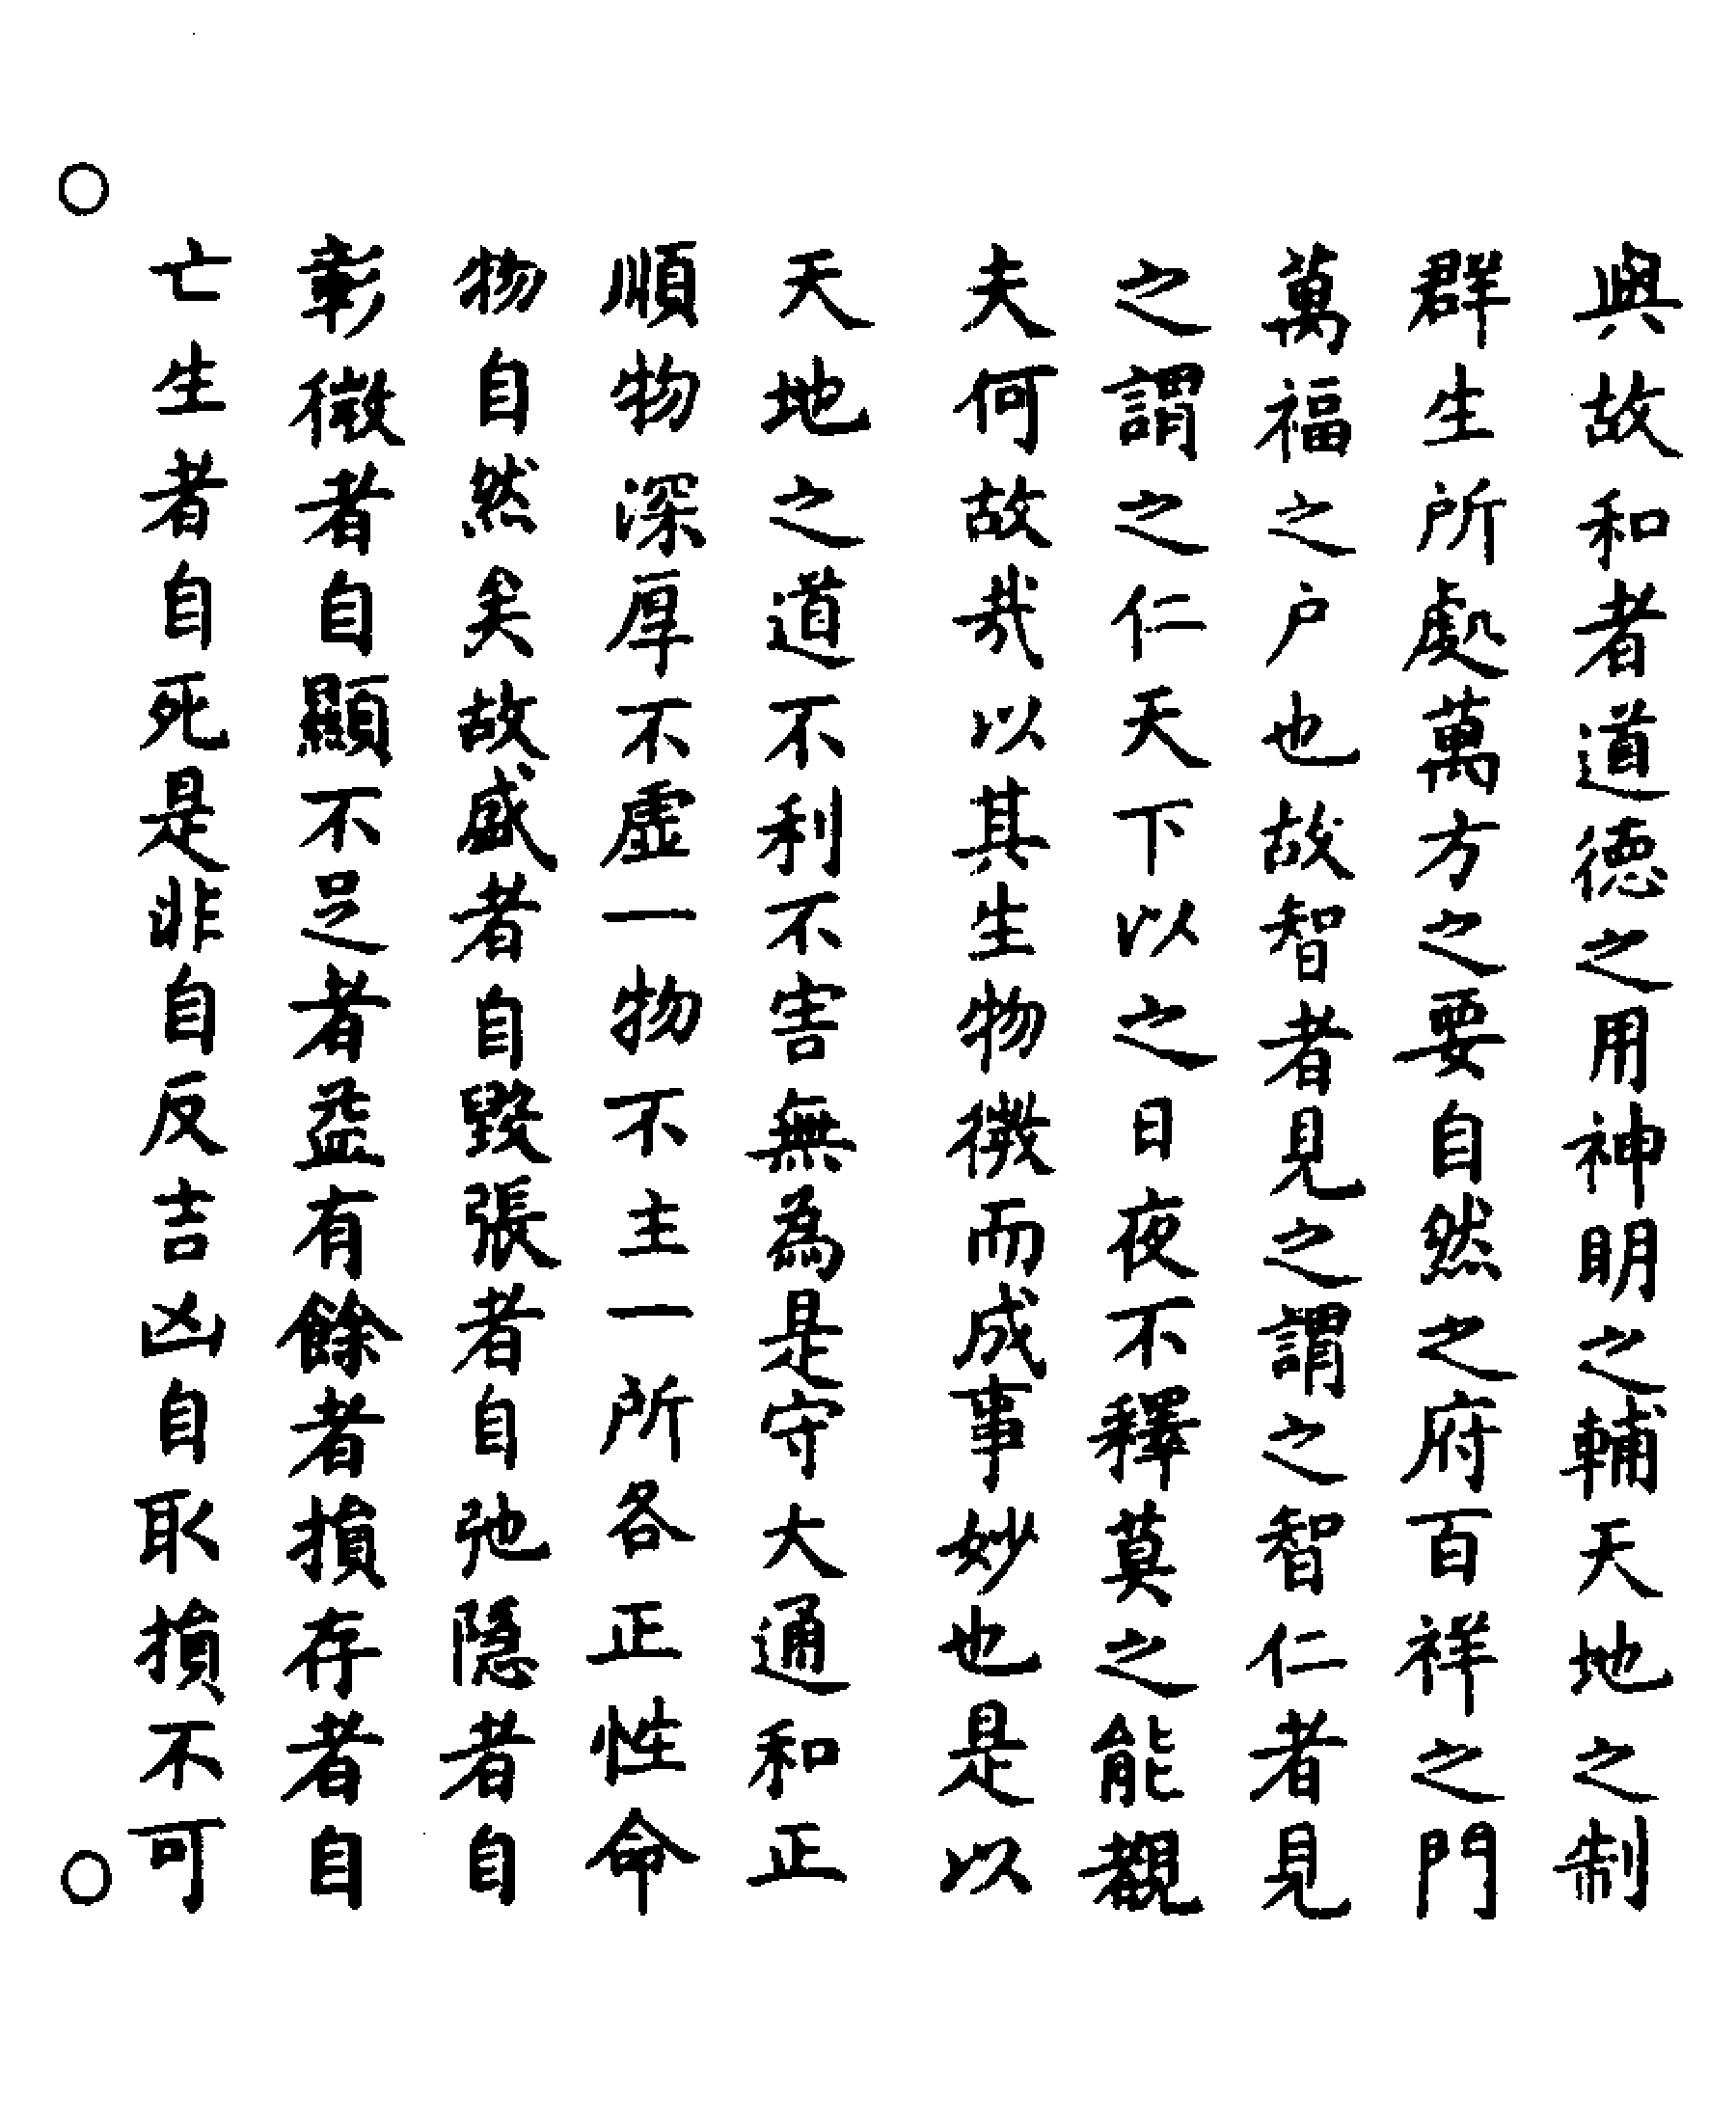 與故和者道德之用神明之輔天地之制
群生所處萬方之要自然之府百祥之門
萬福之户也故智者見之謂之智仁者見
之謂之仁天下以之日夜不釋莫之能覩
夫何故哉以其生物微而成事妙也是以
天地之道不利不害無為是守大通和正
順物深厚不虛一物不主一所各正性命
物自然矣故盛者自毀張者自弛隱者自
彰微者自顯不足者益有餘者損存者自
亡生者自死是非自反吉凶自取損不可